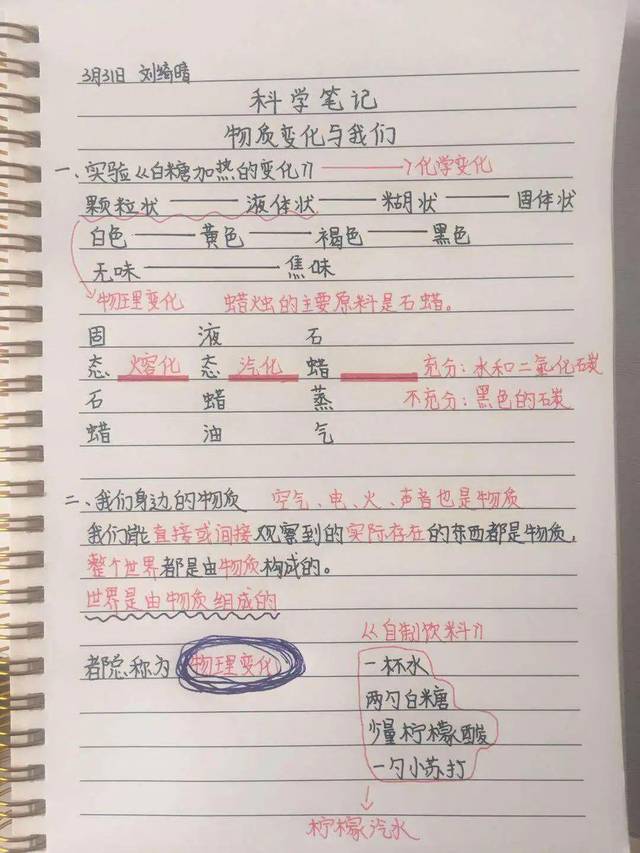 3月31日 刘绮晴
科学笔记
物质变化与我们
一、实验《白糖加热的变化》 → 化学变化
颗粒状 —— 液体状 —— 糊状 —— 固体状
白色 —— 黄色 —— 褐色 —— 黑色
无味 —— 焦味
物理变化 蜡烛的主要原料是石蜡。
固 液 石
态 熔化 态 汽化 蜡 充分:水和二氧化石炭
石 蜡 蒸 不充分:黑色的石炭
蜡 油 气
二、我们身边的物质 空气、电、火、声音也是物质
我们能直接或间接观察到的实际存在的东西都是物质,
整个世界都是由物质构成的。
世界是由物质组成的
《自制饮料》
都总称为 物理变化 一杯水
两勺白糖
少量柠檬酸
一勺小苏打
柠檬汽水